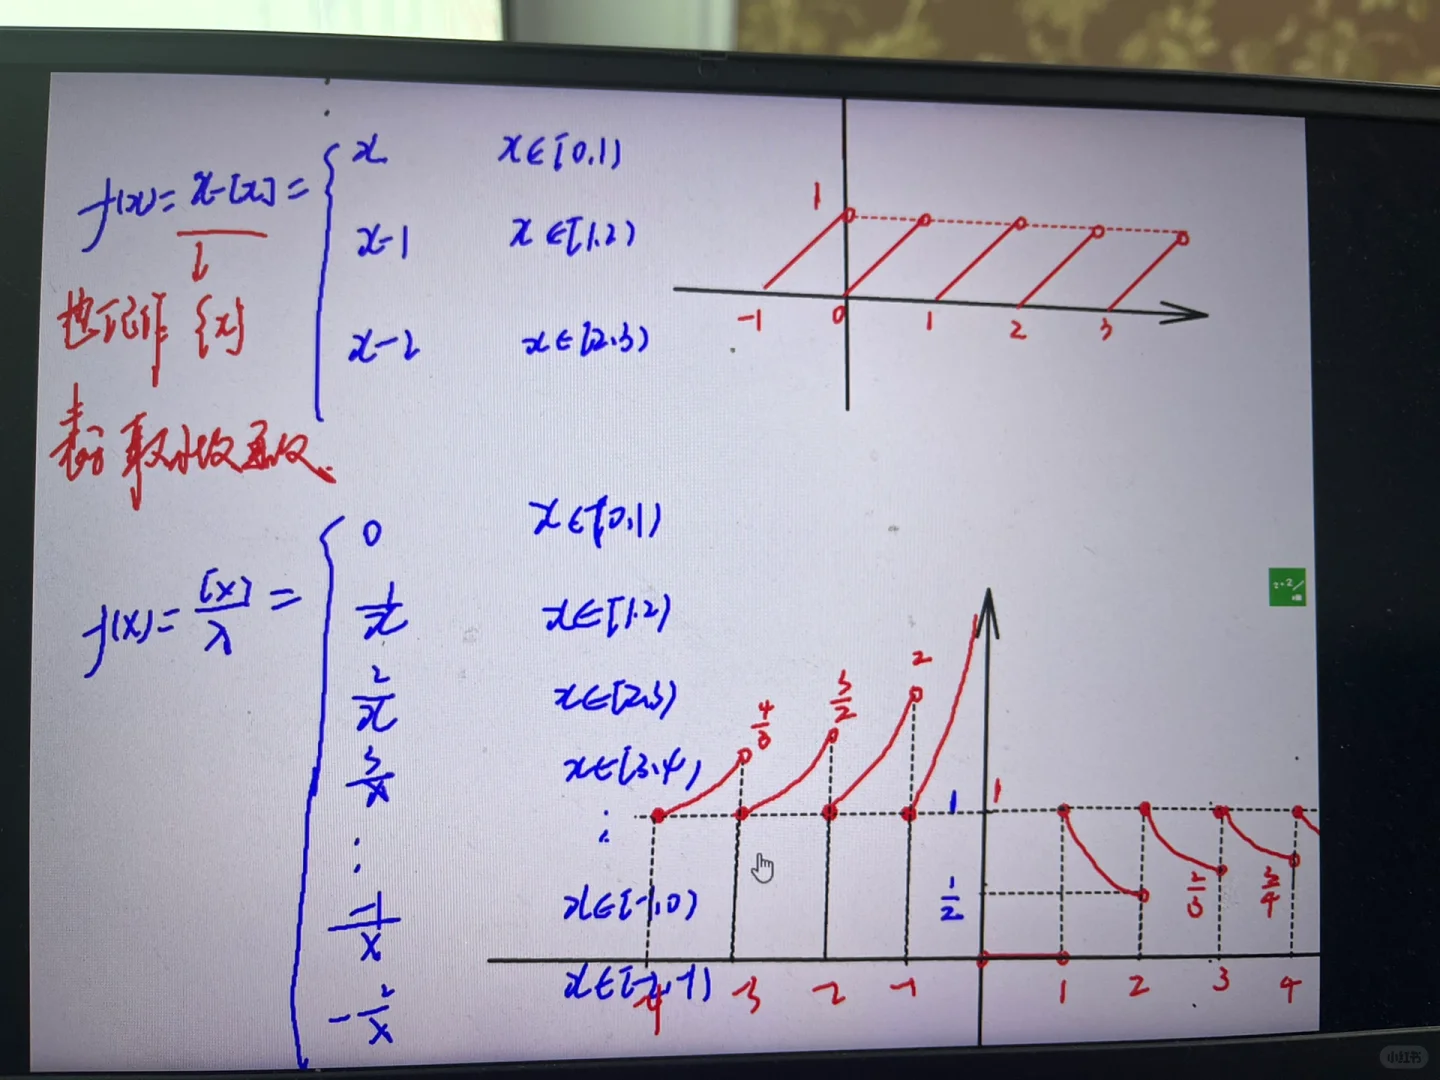 f(x)= x-[x] =
x x∈[0,1)
x-1 x∈[1.2)
x-2 x∈[2.3)
也记作 {x}
表示取小数函数.
1
-1 0 1 2 3
f(x)= [x]/x =
0 x∈[0,1)
1/x x∈[1.2)
2/x x∈[2.3)
3/x x∈[3.4)
⋮ ⋮
-1/x x∈[-1,0)
-2/x x∈[-2,-1)
4/3 3/2 2
1 1
1/2 2/3 3/4
-4 -3 -2 -1 1 2 3 4
小红书